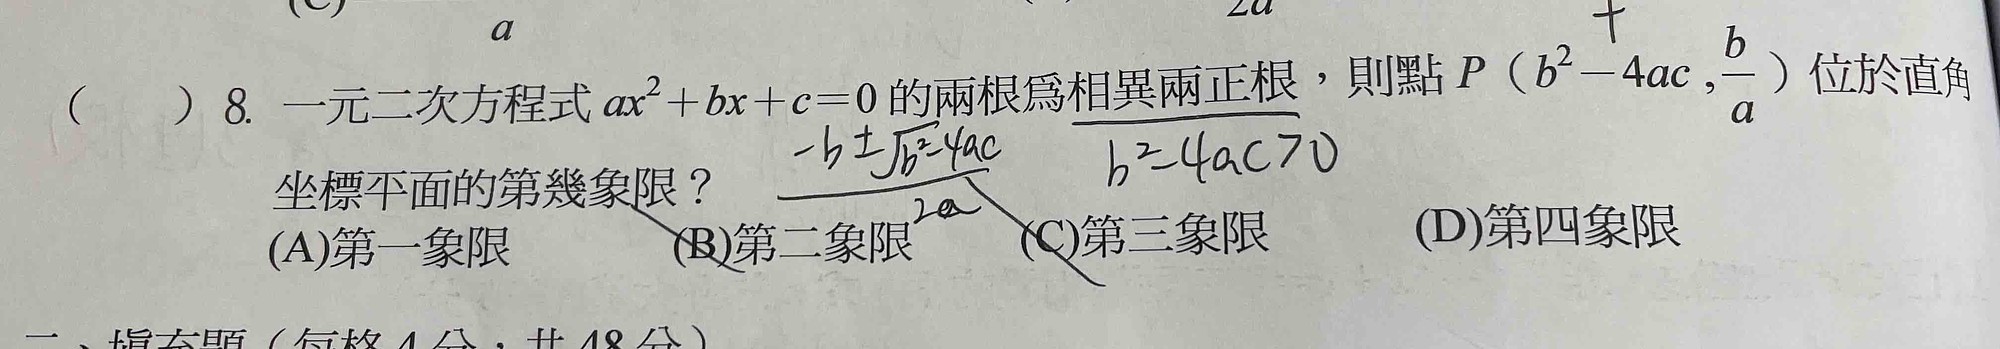 (C)
a
2a
+
( ) 8. 一元二次方程式 ax²+bx+c=0 的兩根為相異兩正根,則點 P(b²-4ac, b/a)位於直角
坐標平面的第幾象限?
-b±√b²-4ac
2a
b²-4ac>0
(A)第一象限 (B)第二象限 (C)第三象限 (D)第四象限
二、填充題(每格 4 分,共 48 分)